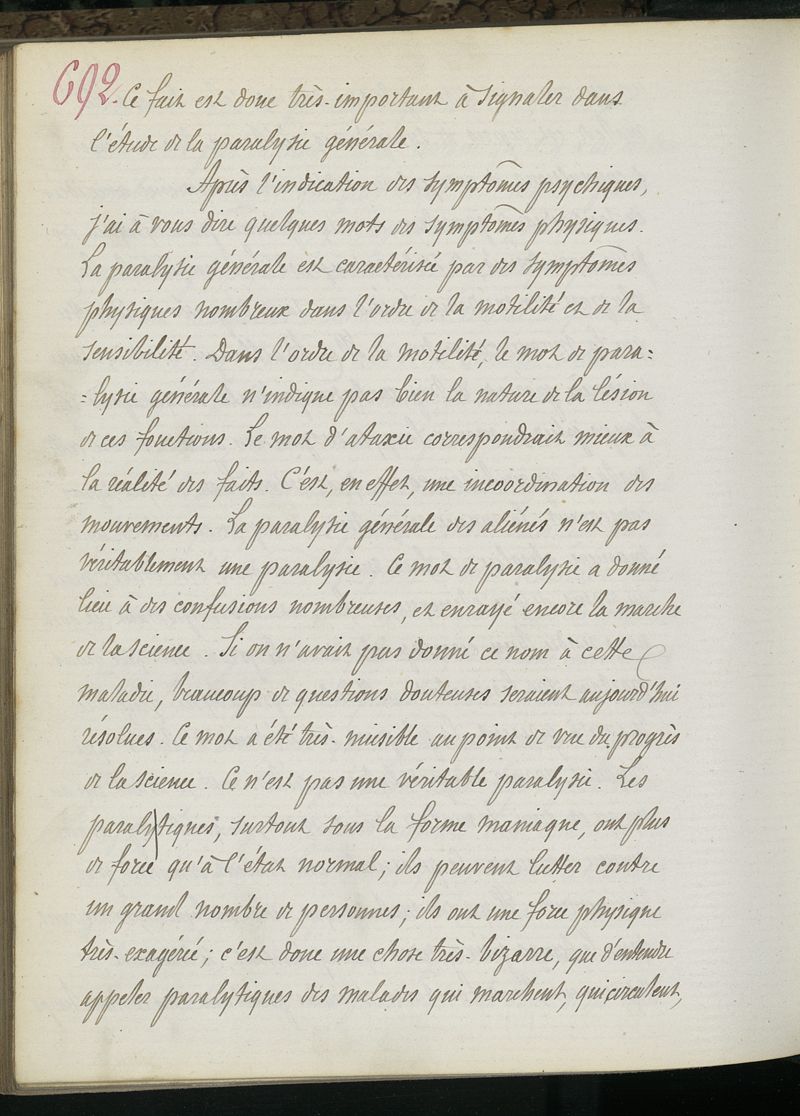 692. Ce fait est donc très-important à signaler dans
l'étude de la paralysie générale.
Après l'indication des symptômes psychiques,
j'ai à vous dire quelques mots des symptômes physiques.
La paralysie générale est caractérisée par des symptômes
physiques nombreux dans l'ordre de la motilité et de la
sensibilité. Dans l'ordre de la motilité, le mot de para=
=lysie générale n'indique pas bien la nature de la lésion
de ces fonctions. Le mot d'ataxie correspondrait mieux à
la réalité des faits. C'est, en effet, une incoordination des
mouvements. La paralysie générale des aliénés n'est pas
véritablement une paralysie. Ce mot de paralysie a donné
lieu à des confusions nombreuses, et enrayé encore la marche
de la science. Si on n'avait pas donné ce nom à cette
maladie, beaucoup de questions douteuses seraient aujourd'hui
résolues. Ce mot a été très-nuisible au point de vue du progrès
de la science. Ce n'est pas une véritable paralysie. Les
paralytiques, surtout sous la forme maniaque, ont plus
de force qu'à l'état normal; ils peuvent lutter contre
un grand nombre de personnes; ils ont une force physique
très-exagérée; c'est donc une chose très-bizarre, que d'entendre
appeler paralytiques des malades qui marchent, qui circulent,